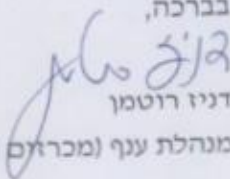 בברכה,
דניז רוטמן
מנהלת ענף (מכרזים